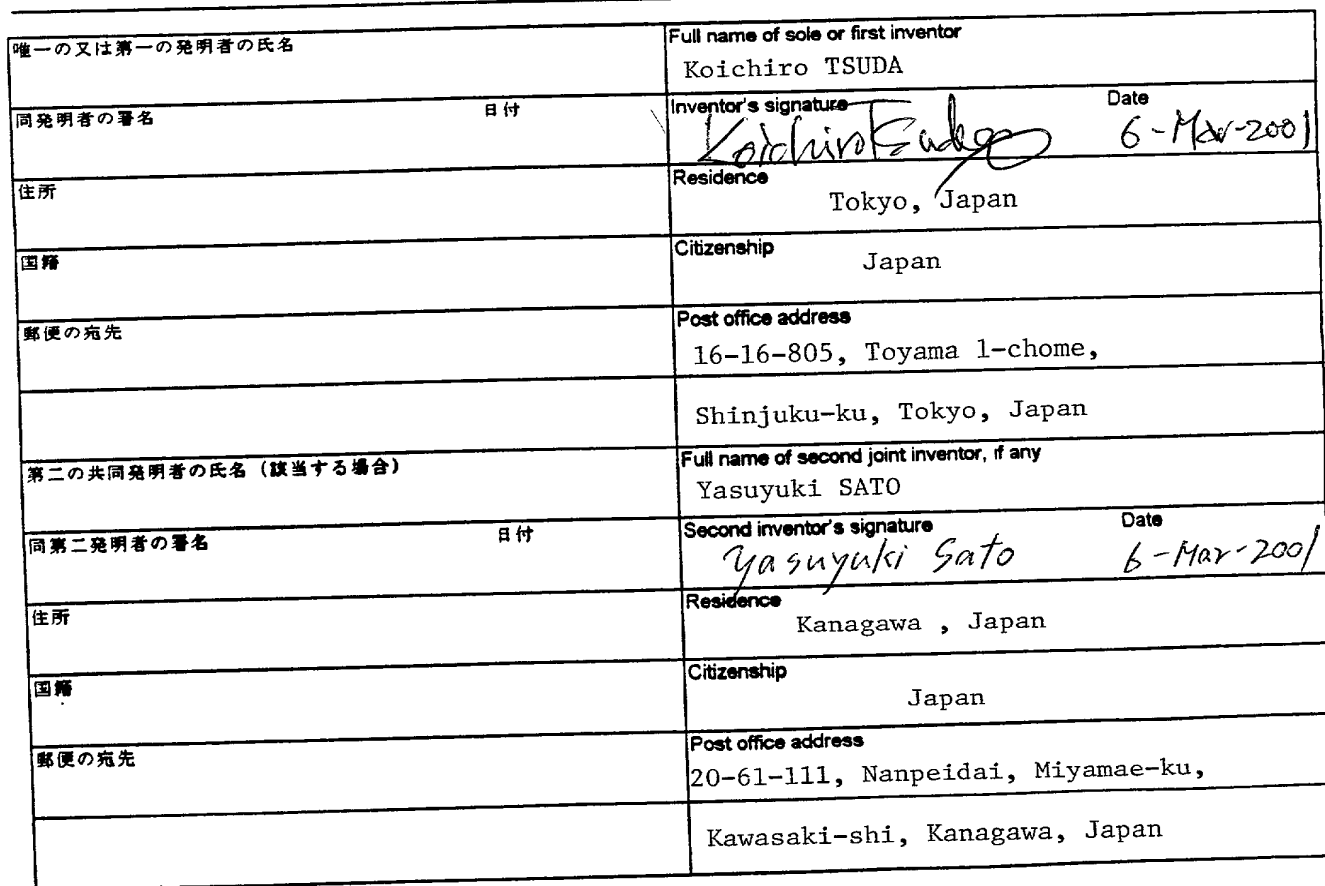 唯一の又は第一の発明者の氏名
Full name of sole or first inventor
Koichiro TSUDA
同発明者の署名 日付
Inventor's signature Date
Koichiro Tsuda 6-Mar-2001
住所
Residence
Tokyo, Japan
国籍
Citizenship
Japan
郵便の宛先
Post office address
16-16-805, Toyama 1-chome,
Shinjuku-ku, Tokyo, Japan
第二の共同発明者の氏名（該当する場合）
Full name of second joint inventor, if any
Yasuyuki SATO
同第二発明者の署名 日付
Second inventor's signature Date
Yasuyuki Sato 6-Mar-2001
住所
Residence
Kanagawa , Japan
国籍
Citizenship
Japan
郵便の宛先
Post office address
20-61-111, Nanpeidai, Miyamae-ku,
Kawasaki-shi, Kanagawa, Japan